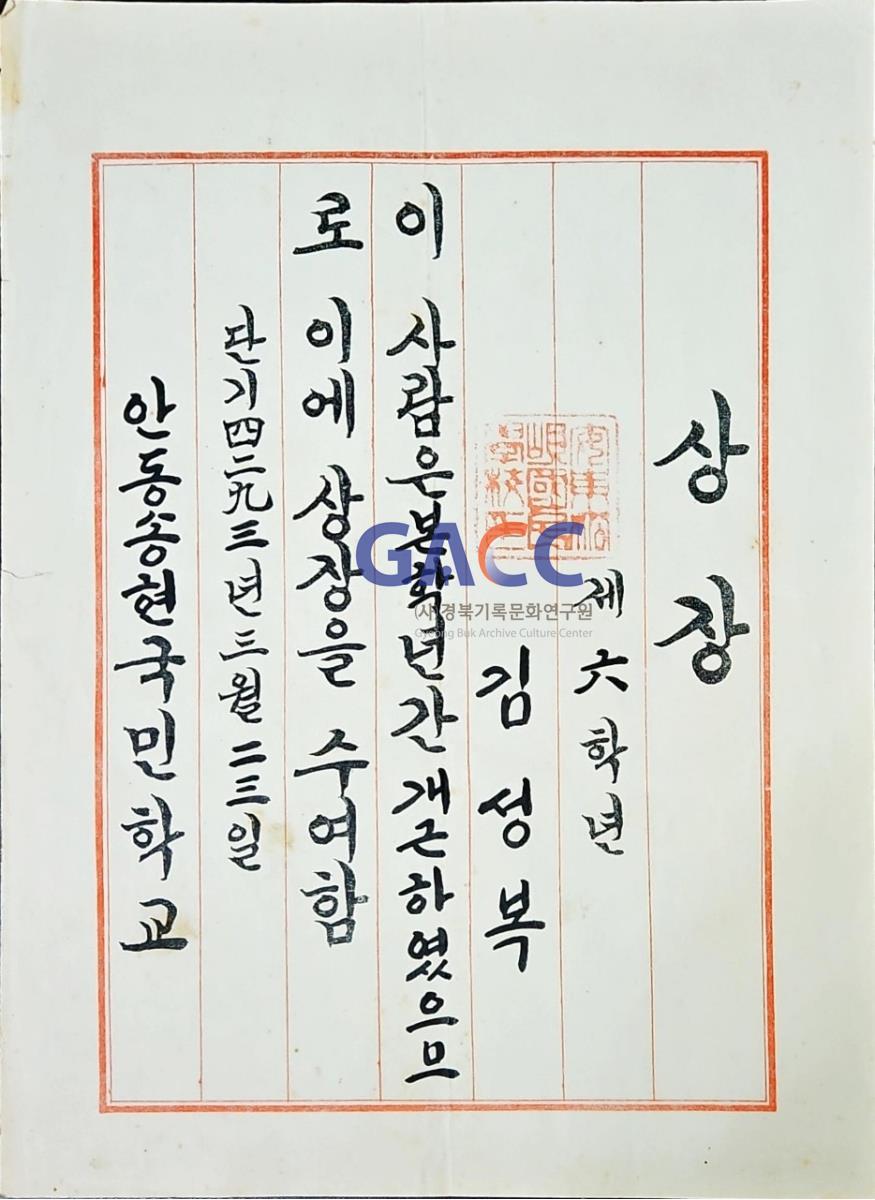 상장
제六학년
김성복
이 사람은본학년간개근하였으므
로 이에 상장을 수여함
단기四二九三년三월二三일
안동송현국민학교
安東松
峴國民
學校印
GACC
(사)경북기록문화연구원
Gyeong Buk Archive Culture Center